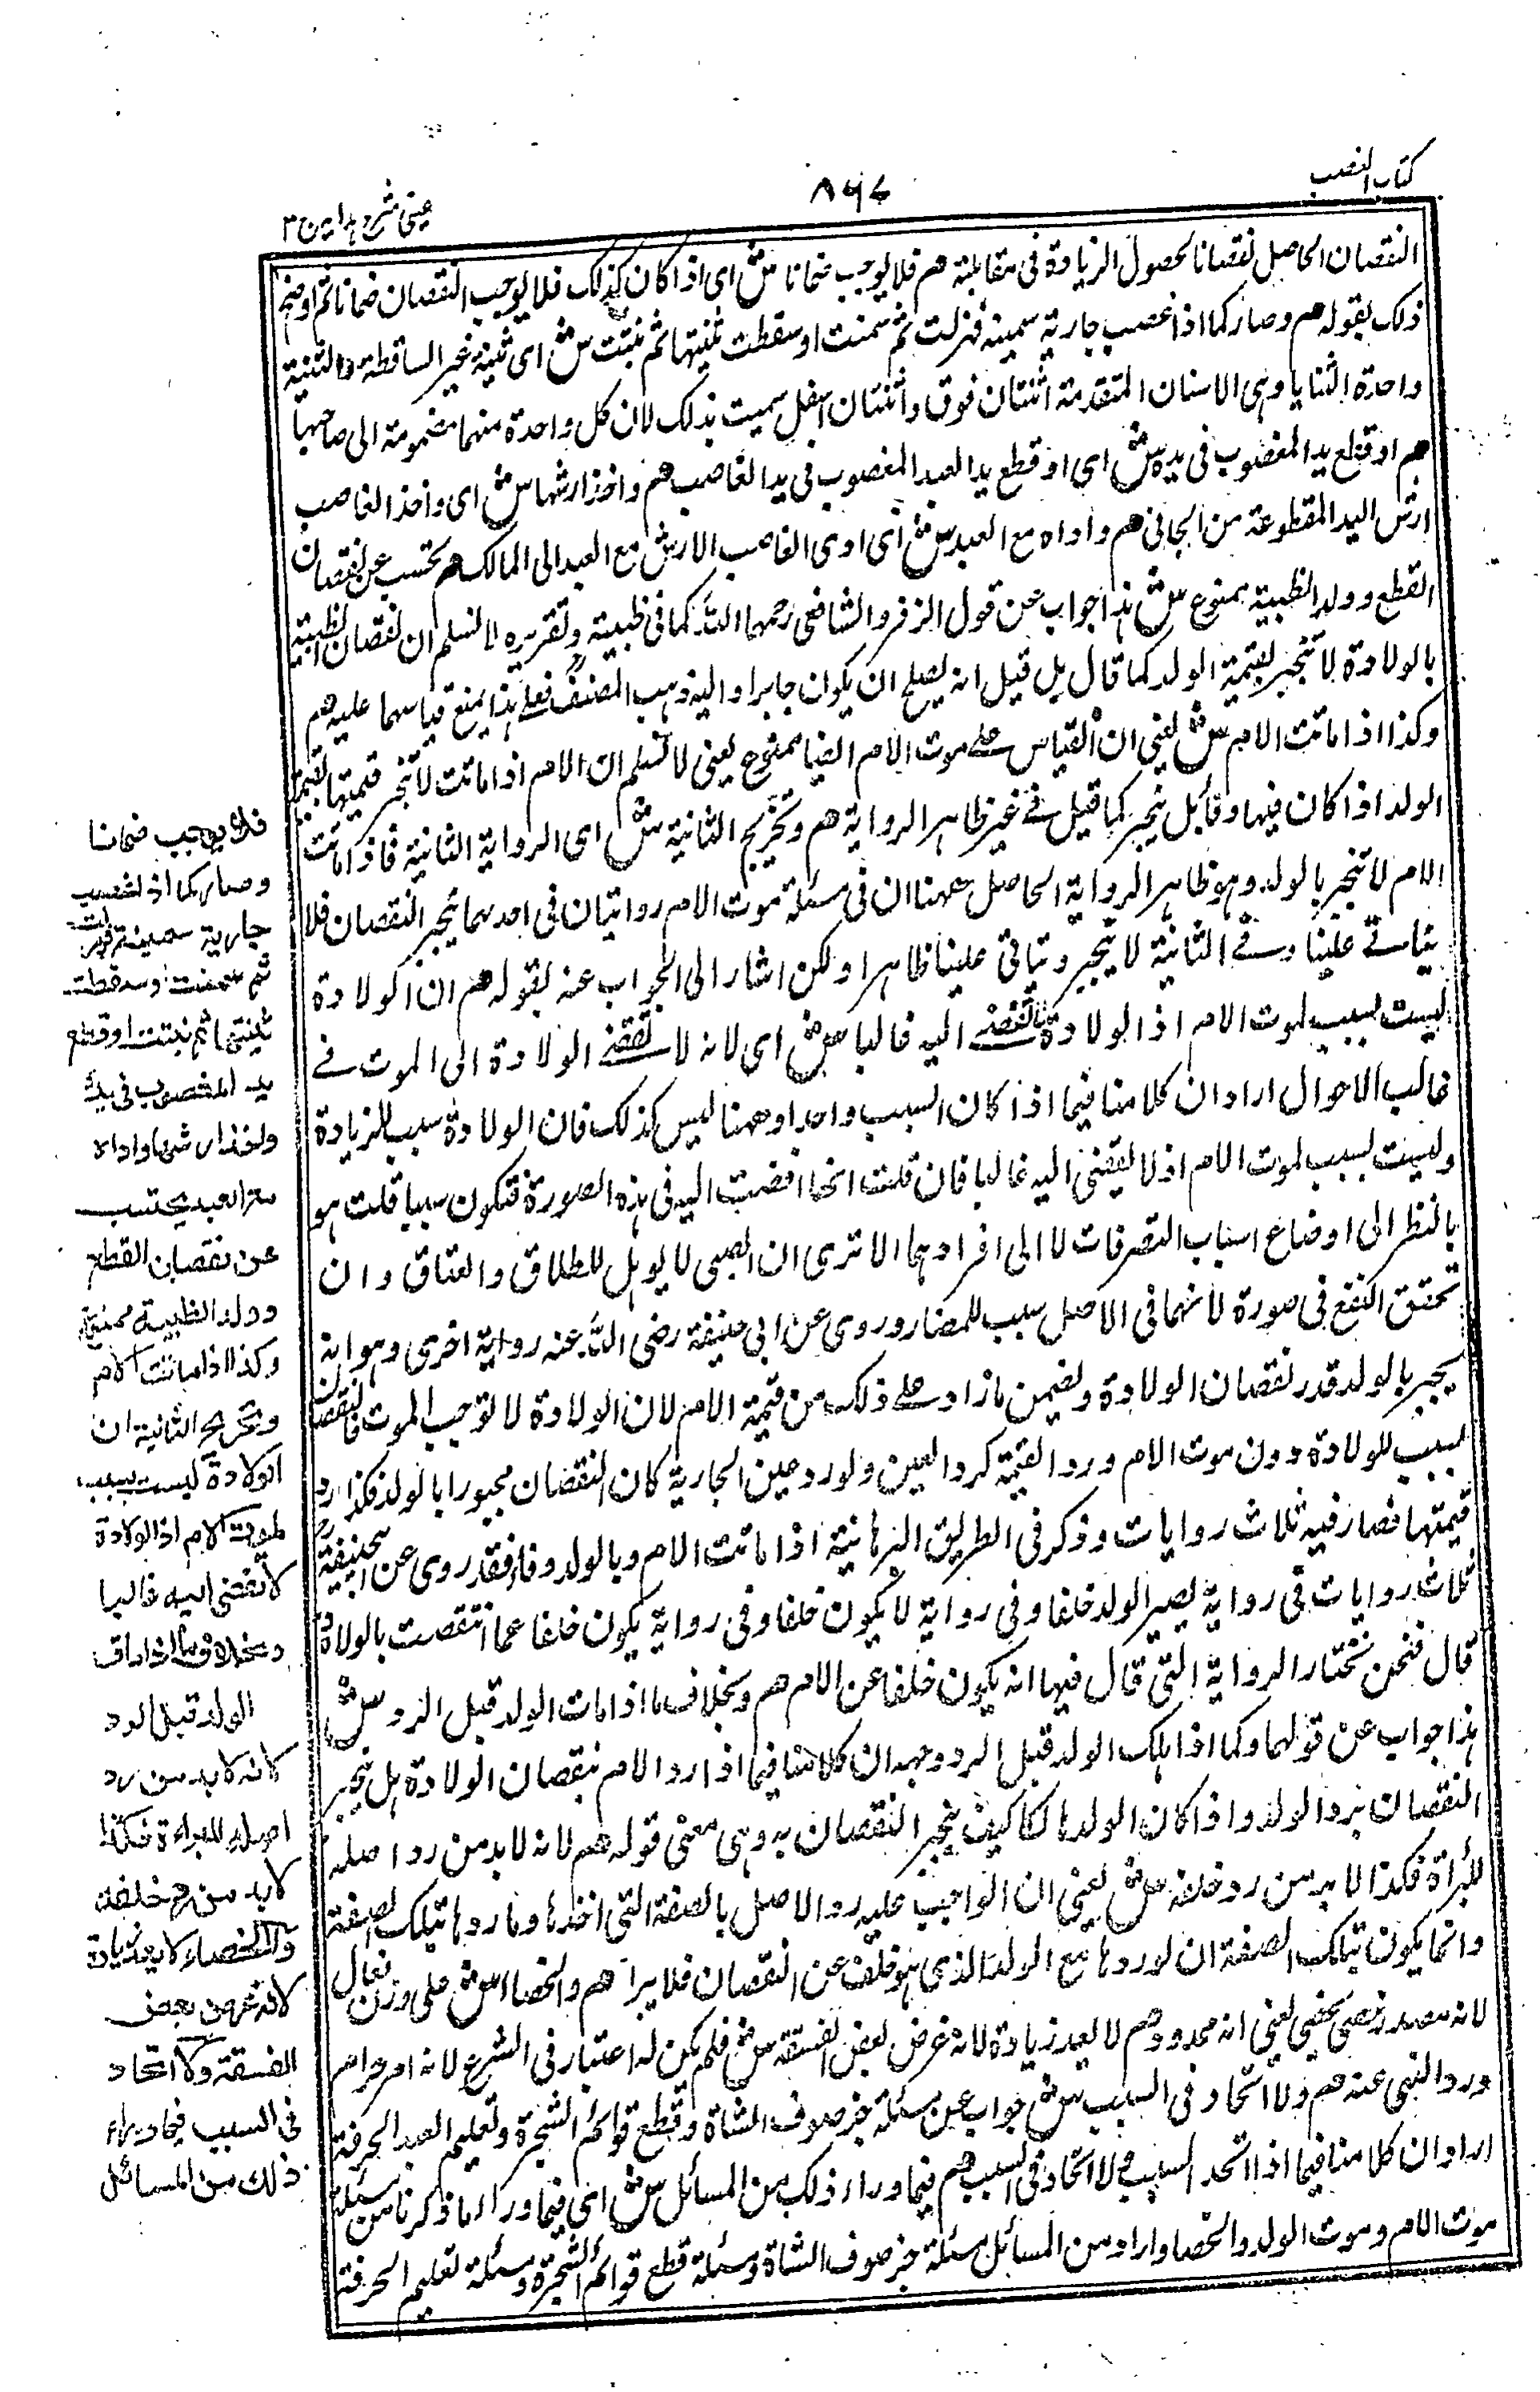 كتاب الغصب
٨٤٧
عینی شرح ہدایہ ج ٣
النقصان الحاصل نقصانا لحصول الزيادة فى مقابلته هم فلا يوجب ضمانا ش اى اذا كان كذلك فلا يوجب النقصان ضمانا ثم اوضح
ذلك بقوله هم وصار كما اذا غصب جارية سمينة فهزلت ثم سمنت او سقطت ثنيتها ثم نبتت ش اى ثنية غير الساقطة والثنية
واحدة الثنايا وهى الاسنان المتقدمة اثنتان فوق واثنتان اسفل سميت بذلك لان كل واحدة منهما مضمومة الى صاحبها
هم او قطع يد المغصوب فى يده ش اى او قطع يد العبد المغصوب فى يد الغاصب هم واخذ ارشها ش اى واخذ الغاصب
ارش اليد المقطوعة من الجانى هم واداه مع العبد ش اى ادى الغاصب الارش مع العبد الى المالك هم يحتسب عن نقصان
القطع وولد الظبية ممنوع ش هذا جواب عن قول الزفر والشافعى رحمهما الله كما فى ظبية وتقريره لا نسلم ان نقصان الظبية
بالولادة لا تنجبر بقيمة الولد كما قال بل قيل انه يصلح ان يكون جابرا واليه ذهب المصنف فعلى هذا يمنع قياسهما عليه هم
وكذا اذا ماتت الام ش يعنى ان القياس على موت الام ايضا ممنوع يعنى لا نسلم ان الام اذا ماتت لا تنجبر قيمتها بقيمة
الولد اذا كان فيها وفاء بل ينجبر كما قيل فى غير ظاهر الرواية هم وتخريج الثانية ش اى الرواية الثانية فاذا ماتت
الام لا تنجبر بالولد وهو ظاهر الرواية الحاصل ههنا ان فى مسئلة موت الام روايتان فى احدهما ينجبر النقصان فلا
يتاتى علينا وفى الثانية لا ينجبر ويتاتى علينا ظاهرا ولكن اشار الى الجواب عنه بقوله هم ان الولادة
ليست بسبب لموت الام اذ الولادة لا تفضى اليه غالبا ش اى لانه لا تفضى الولادة الى الموت فى
غالب الاحوال اراد ان كلامنا فيما اذا كان السبب واحدا وههنا ليس كذلك فان الولادة سبب للزيادة
وليست بسبب لموت الام اذ لا يفضى اليه غالبا فان قلت انها افضت اليه فى هذه الصورة فتكون سببا قلت هو
بالنظر الى اوضاع اسباب التصرفات لا الى افرادها الا ترى ان الصبى لا يوهل للطلاق والعتاق وان
تحقق النفع فى صورة لانهما فى الاصل سبب للمضار وروى عن ابى حنيفة رضى الله عنه رواية اخرى وهو انه
يجبر بالولد قدر نقصان الولادة ويضمن ما زاد على ذلك من قيمة الام لان الولادة لا توجب الموت فالنقصان
بسبب للولادة دون موت الام ورد القيمة كرد العين ولو رد عين الجارية كان النقصان مجبورا بالولد فكذا رد
قيمتها فصار فيه ثلاث روايات وذكر فى الطريق البرهانية اذا ماتت الام وبالولد وفاء فقد روى عن ابى حنيفة رح
ثلاث روايات فى رواية يصير الولد خلفا وفى رواية لا يكون خلفا وفى رواية يكون خلفا عما انتقصت بالولادة
قال فنحن نختار الرواية التى قال فيها انه يكون خلفا عن الام هم وبخلاف ما اذا مات الولد قبل الرد ش
هذا جواب عن قولهما وكما اذا هلك الولد قبل الرد وجهه ان كلامنا فيما اذا رد الام بنقصان الولادة هل ينجبر
النقصان برد الولد واذا كان الولد هالكا كيف ينجبر النقصان به وهى معنى قوله هم لانه لا بد من رد اصله
للبراة فكذا لا بد من رد خلفه ش يعنى ان الواجب عليه رد الاصل بالصفة التى اخذها وما ردها بتلك الصفة
وانما يكون بتلك الصفة ان لو ردها مع الولد الذى هو خلف عن النقصان فلا يبرأ هم والخصاء ش على وزن فعال
لانه مصدر خصى يخصى يعنى انه ممدود هم لا يعد زيادة لانه غرض بعض الفسقة ش فلم يكن له اعتبار فى الشرع لانه امر حرام
ورد النهى عنه هم ولا اتحاد فى السبب ش جواب عن مسئلة جز صوف الشاة وقطع قوائم الشجرة وتعليم العبد الحرفة
اراد ان كلامنا فيما اذا اتحد السبب هم لا اتحاد فى السبب هم فيما وراء ذلك من المسائل ش اى فيما وراء ما ذكرنا من مسئلة
موت الام وموت الولد والخصا واراد من المسائل مسئلة جز صوف الشاة ومسئلة قطع قوائم الشجرة ومسئلة تعليم الحرفة
فلا يوجب ضمانا
وصار كما اذا غصب
جارية سمينة فهزلت
ثم سمنت او سقطت
ثنيتها ثم نبتت او قطع
يد المغصوب فى يده
واخذ ارشها واداه
مع العبد يحتسب
عن نقصان القطع
وولد الظبية ممنوع
وكذا اذا ماتت الام
وتخريج الثانية ان
الولادة ليست بسبب
لموت الام اذ الولادة
لا تفضى اليه غالبا
وبخلاف ما اذا مات
الولد قبل الرد
لانه لا بد من رد
اصله للبراءة فكذا
لا بد من رد خلفه
والخصاء لا يعد زيادة
لانه غرض بعض
الفسقة ولا اتحاد
فى السبب فيما وراء
ذلك من المسائل